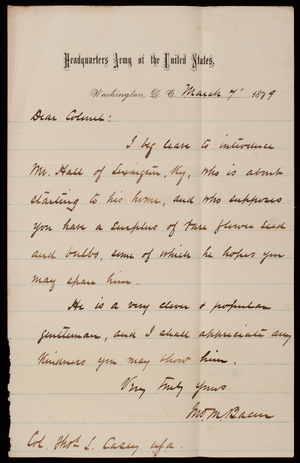 Headquarters Army of the United States,
Washington, D. C. March 7" 1879
Dear Colonel:
I beg leave to introduce
Mr. Hall of Lexington, Ky, who is about
starting to his home, and who supposes
you have a surplus of rare flower seed
and bulbs, some of which he hopes you
may spare him.
He is a very clever & popular
gentleman, and I shall appreciate any
kindness you may show him.
Very truly yours
Jno. M. Bacon
Col. Thos. L. Casey USA.